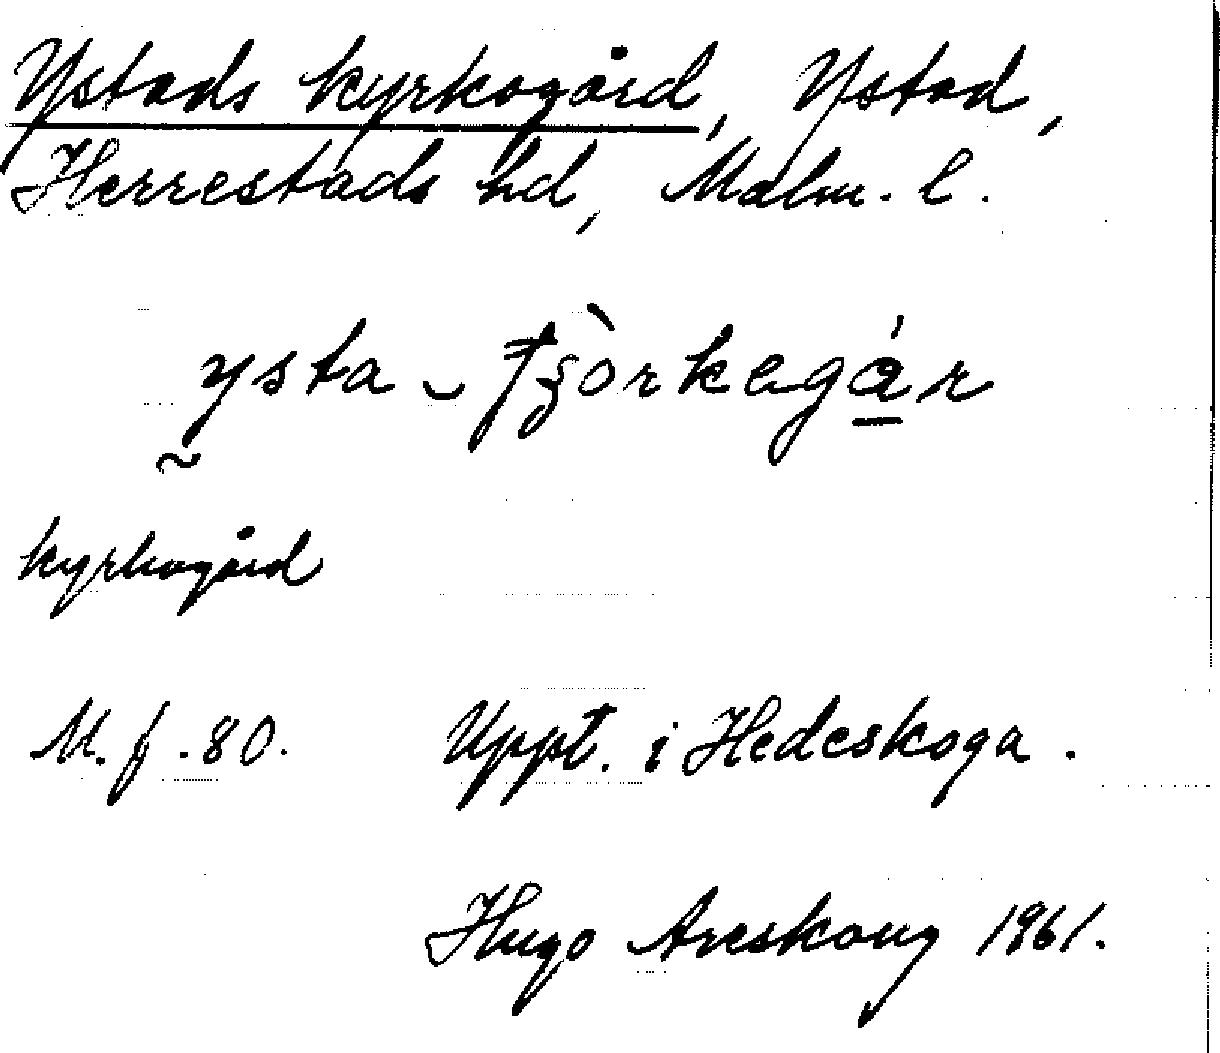 Ystads kyrkogård, Ystad,
Herrestads hd, Malm. l.
ysta ‿ tʒòrkegár
kyrkogård
M. f. 80. Uppt. i Hedeskoga.
Hugo Areskoug 1961.